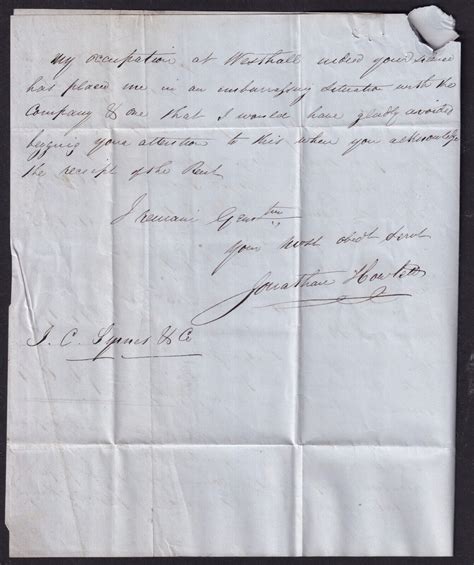 My occupation at Westhall under your lease
has placed me in an embarrassing situation with the
Company & one that I would have gladly avoided
begging your attention to this when you acknowledge
the receipt of the Rent
I remain Gentmn
your most obedt Servt
Jonathan Howlett
J. C. Symes & Co